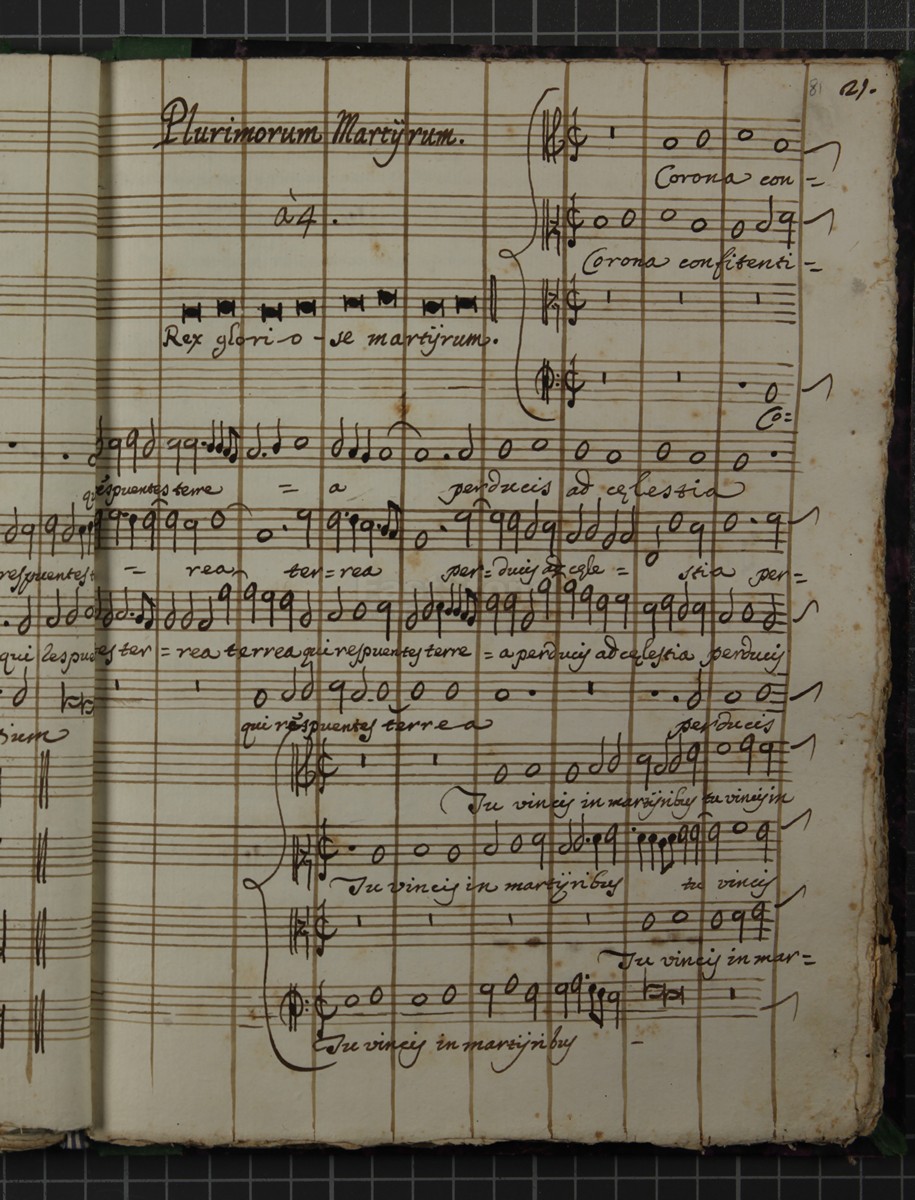 81 21.
Plurimorum Martÿrum.
à 4.
Corona con =
Corona confitenti =
Rex glori-o-se martÿrum.
Co=
respuentes terre = a perducis ad cęlestia
respuentes t = rea ter=rea per=ducis ad cęle = stia per=
qui respuentes ter = rea terrea qui respuentes terre = a perducis ad cęlestia perducis
qui respuentes terrea perducis
Tu vincis in martÿribus tu vincis in
Tu vincis in martÿribus tu vincis
Tu vincis in mar=
Tu vincis in martÿribus -